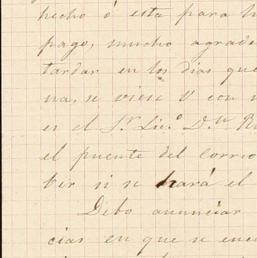 hecho ó esta para
pago, mucho agrade
tardar en los dias que
na, se viese V con
en el Sr. Lic.º D.n
el puente del correo
tir si se hará el
Debo anunciar
cias en que se encu